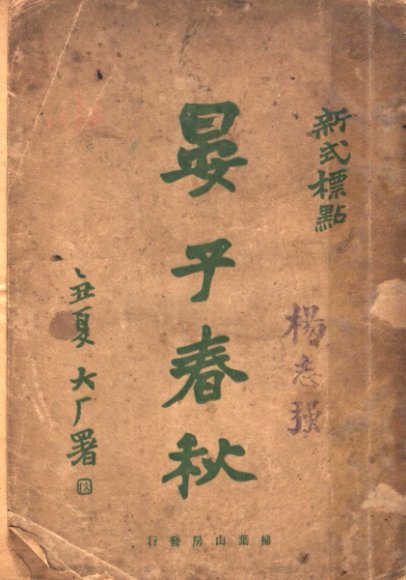 新式標點
晏子春秋
乙丑夏大厂署
楊志强
掃葉山房發行